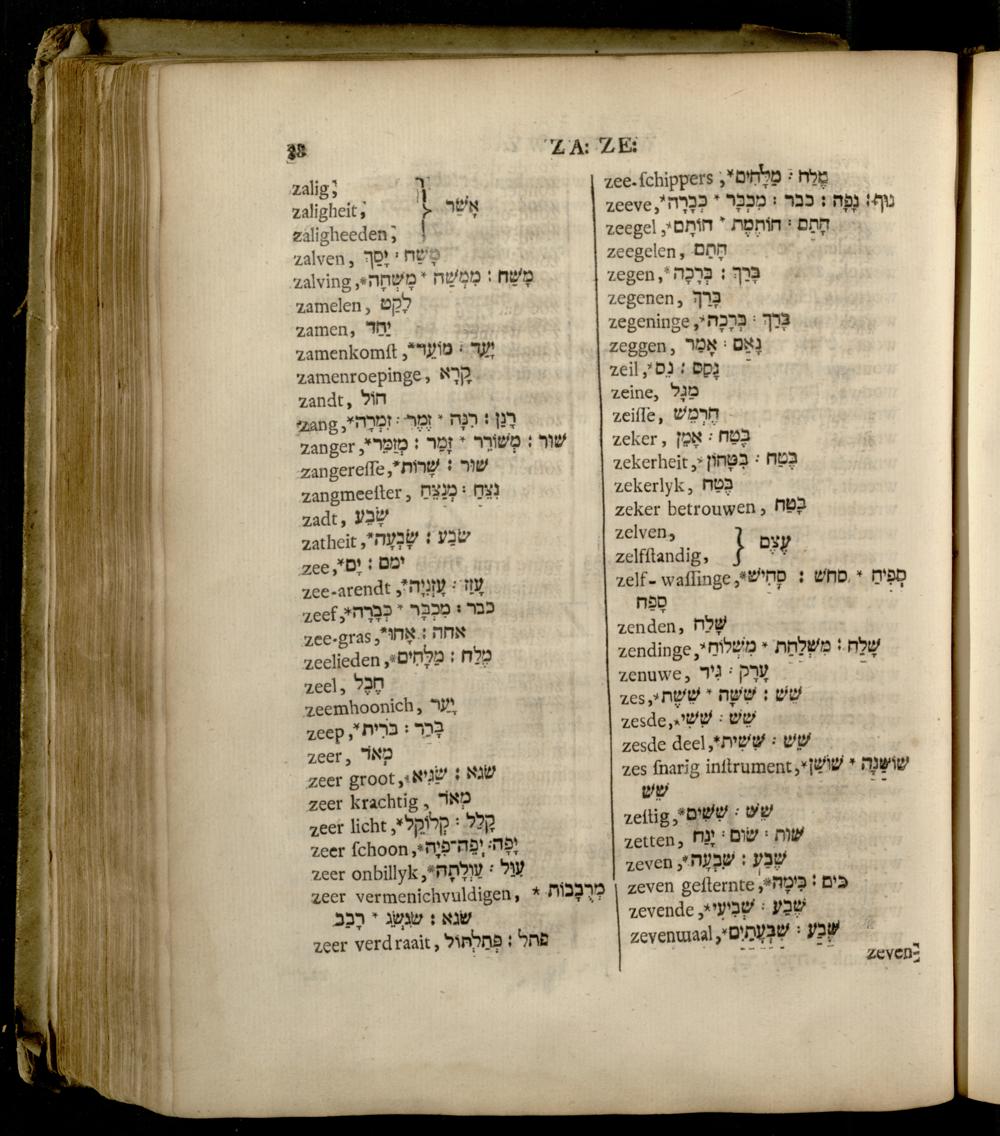 38
ZA: ZE:
zalig,
zaligheit, } אָשַׁר
zaligheeden,
zalven, מָשַׁח : יָסַךְ
zalving,* מָשַׁח : מִמְשַׁח * מָשְׁחָה
zamelen, לָקַט
zamen, יַחַד
zamenkomſt,* יָעַד : מוֹעֵד
zamenroepinge, קָרָא
zandt, חוֹל
zang,* רָנַן : רִנָּה * זָמַר : זִמְרָה
zanger,* שׁוּר : מְשׁוֹרֵר * זָמַר : מְזַמֵּר
zangereſſe,* שׁוּר : שָׁרוֹת
zangmeeſter, נִצַּח : מְנַצֵּחַ
zadt, שָׂבַע
zatheit,* שׂבַע : שָׂבְעָה
zee,* ימם : יָם
zee-arendt,* עָזַז : עָזְנִיָּה
zeef,* כבר : מִכְבָּר * כְּבָרָה
zee-gras,* אחה : אָחוּ
zeelieden,* מֶלַח : מַלָּחִים
zeel, חֶבֶל
zeemhoonich, יָעַר
zeep,* בָּרַר : בֹּרִית
zeer, מְאֹד
zeer groot,* שׂגא : שַׂגִּיא
zeer krachtig, מְאֹד
zeer licht,* קָלַל : קְלוֹקֵל
zeer ſchoon,* יָפָה : יְפֵה־פִיָּה
zeer onbillyk,* עָוַל : עַוְלָתָה
zeer vermenichvuldigen, * מְרֻבָבוֹת
שׂגא : שִׂגְשֵׂג * רָבַב
zeer verdraait, פתל : פְּתַלְתּוֹל
zee-ſchippers,* מֶלַח : מַלָּחִים
zeeve,* נוּף : נָפָה : כבר : מִכְבָּר * כְּבָרָה
zeegel,* חָתַם : חוֹתֶמֶת * חוֹתָם
zeegelen, חָתַם
zegen,* בָּרַךְ : בְּרָכָה
zegenen, בָּרַךְ
zegeninge,* בָּרַךְ : בְּרָכָה
zeggen, נָאַם : אָמַר
zeil,* נָסַס : נֵס
zeine, מַגָּל
zeiſſe, חֶרְמֵשׁ
zeker, בֶּטַח : אָמַן
zekerheit,* בֶּטַח : בִּטָּחוֹן
zekerlyk, בֶּטַח
zeker betrouwen, בָּטַח
zelven,
zelfſtandig, } עֶצֶם
zelf-waſſinge,* סָפִיחַ * סחשׁ : סָחִישׁ
סָפַח
zenden, שָׁלַח
zendinge,* שָׁלַח : מִשְׁלַחַת * מִשְׁלוֹחַ
zenuwe, עָרָק : גִּיד
zes,* שֵׁשׁ : שִׁשָּׁה * שֵׁשֶׁת
zesde,* שֵׁשׁ : שִׁשִּׁי
zesde deel,* שֵׁשׁ : שִׁשִּׁית
zes ſnarig inſtrument,* שׁוֹשַׁנָּה * שׁוּשַׁן
שֵׁשׁ
zeſtig,* שֵׁשׁ : שִׁשִּׁים
zetten, שׁוּת : שׂוּם : יָנַח
zeven,* שֶׁבַע : שִׁבְעָה
zeven geſternte,* כּים : כִּימָה
zevende,* שֶׁבַע : שְׁבִיעִי
zevenmaal,* שֶׁבַע : שִׁבְעָתַיִם
zeven-